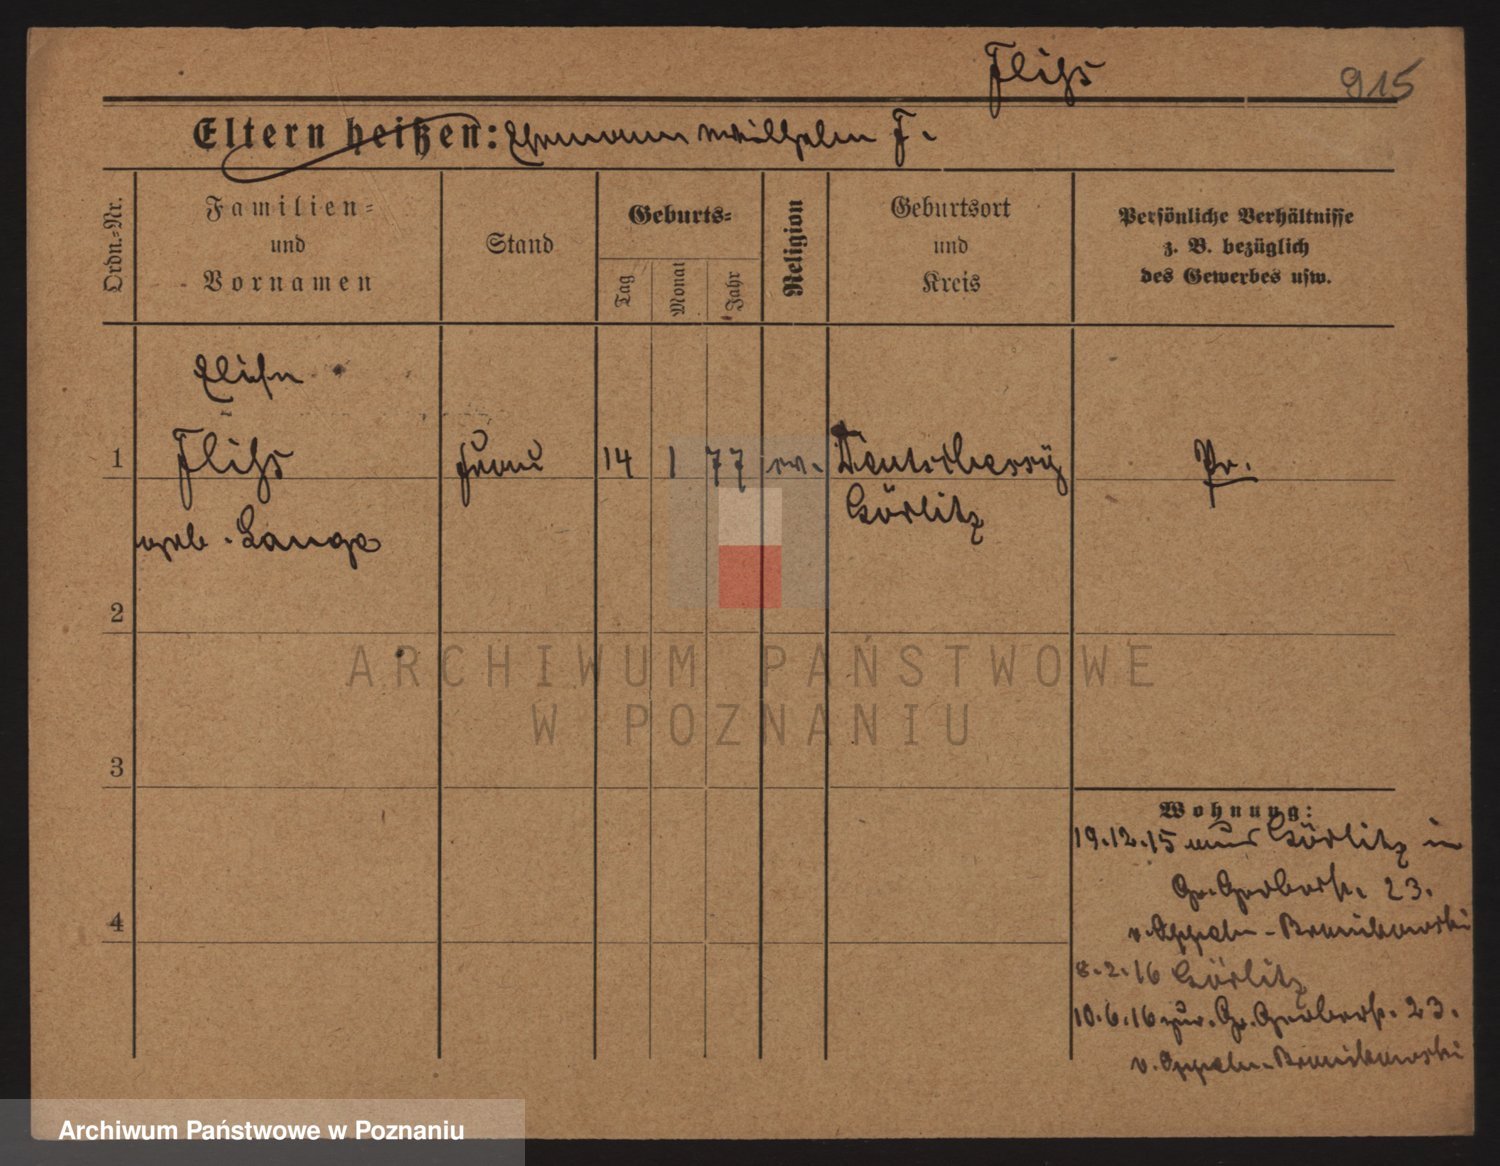 Fliſs 915
Eltern heißen: Ehemann Wilhelm F.
Ordn.-Nr.
Familien-
und
Vornamen
Stand
Geburts-
Tag
Monat
Jahr
Religion
Geburtsort
und
Kreis
Persönliche Verhältnisse
z. B. bezüglich
des Gewerbes usw.
Elise
1 Fliſs Frau 14 1 77 ev. Pr.
geb. Lange Görlitz
2
3
4
Wohnung:
19.12.15 aus Görlitz in
Gr. Gerberst. 23.
v. Oppeln-Bronikowski
8.2.16 Görlitz
10.6.16 zur. Gr. Gerberst. 23.
v. Oppeln-Bronikowski
ARCHIWUM PAŃSTWOWE
W POZNANIU
Archiwum Państwowe w Poznaniu